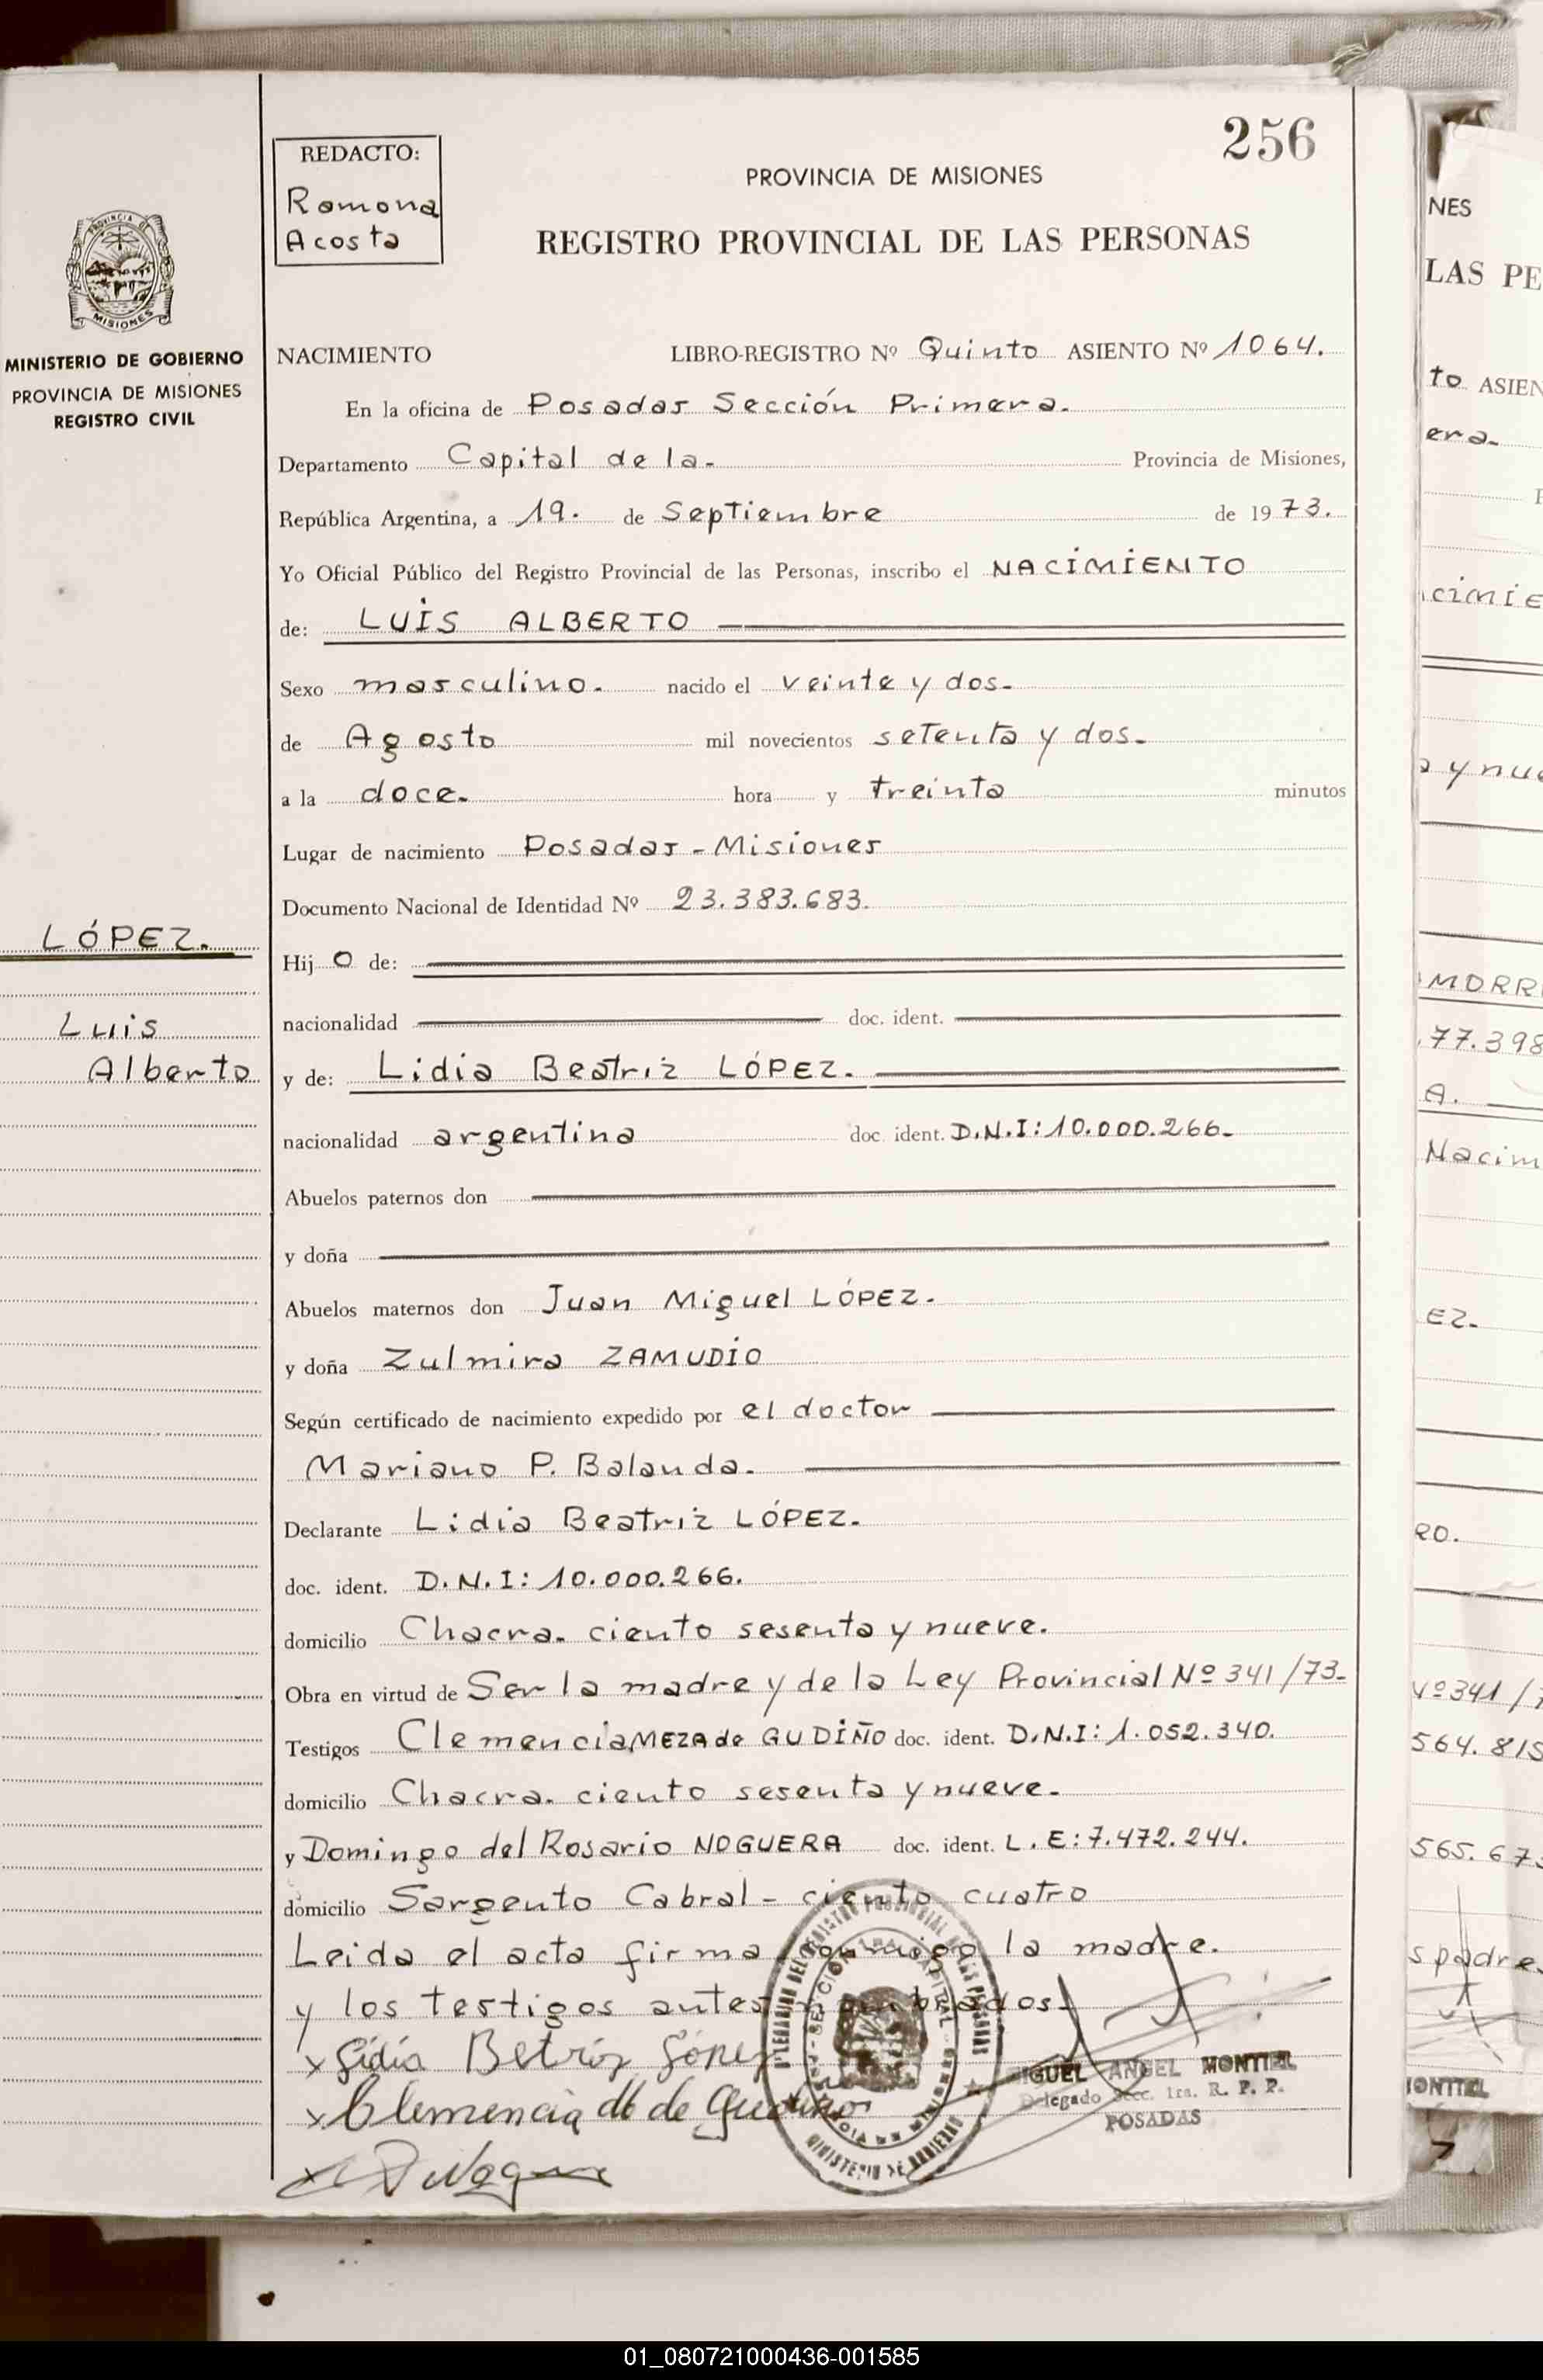 256
REDACTO:
Ramona
Acosta
PROVINCIA DE MISIONES
REGISTRO PROVINCIAL DE LAS PERSONAS
PROVINCIA DE
MISIONES
MINISTERIO DE GOBIERNO
PROVINCIA DE MISIONES
REGISTRO CIVIL
NACIMIENTO LIBRO-REGISTRO Nº Quinto ASIENTO Nº 1064.
En la oficina de Posadas Sección Primera.
Departamento Capital de la- Provincia de Misiones,
República Argentina, a 19. de Septiembre de 1973.
Yo Oficial Público del Registro Provincial de las Personas, inscribo el NACIMIENTO
de: LUIS ALBERTO
Sexo masculino. nacido el veinte y dos-
de Agosto mil novecientos setenta y dos-
a la doce- hora y treinta minutos
Lugar de nacimiento Posadas - Misiones
Documento Nacional de Identidad Nº 23.383.683.
LÓPEZ.
Luis
Alberto
Hij o de:
nacionalidad doc. ident.
y de: Lidia Beatriz LÓPEZ.
nacionalidad argentina doc. ident. D.N.I: 10.000.266-
Abuelos paternos don
y doña
Abuelos maternos don Juan Miguel LÓPEZ-
y doña Zulmira ZAMUDIO
Según certificado de nacimiento expedido por el doctor
Mariano P. Balanda.
Declarante Lidia Beatriz LÓPEZ.
doc. ident. D.N.I: 10.000.266.
domicilio Chacra. ciento sesenta y nueve.
Obra en virtud de Ser la madre y de la Ley Provincial Nº 341/73-
Testigos Clemencia MEZA de GUDIÑO doc. ident. D.N.I: 1.052.340.
domicilio Chacra. ciento sesenta y nueve-
y Domingo del Rosario NOGUERA doc. ident. L.E: 7.472.244.
domicilio Sargento Cabral - ciento cuatro
Leida el acta firma conmigo la madre.
y los testigos antes nombrados.
x Lidia Betriz López
x Clemencia M de Gudiño
MIGUEL ANGEL MONTIEL
Delegado Secc. 1ra. R. P. P.
POSADAS
MINISTERIO DE GOBIERNO
NES
LAS PE
to ASIEN
era-
cimie
a y nue
MORR
.77.398
A.
Nacim
EZ-
RO.
Nº 341/7
564.815
565.67
s padre
MONTIEL
01_080721000436-001585